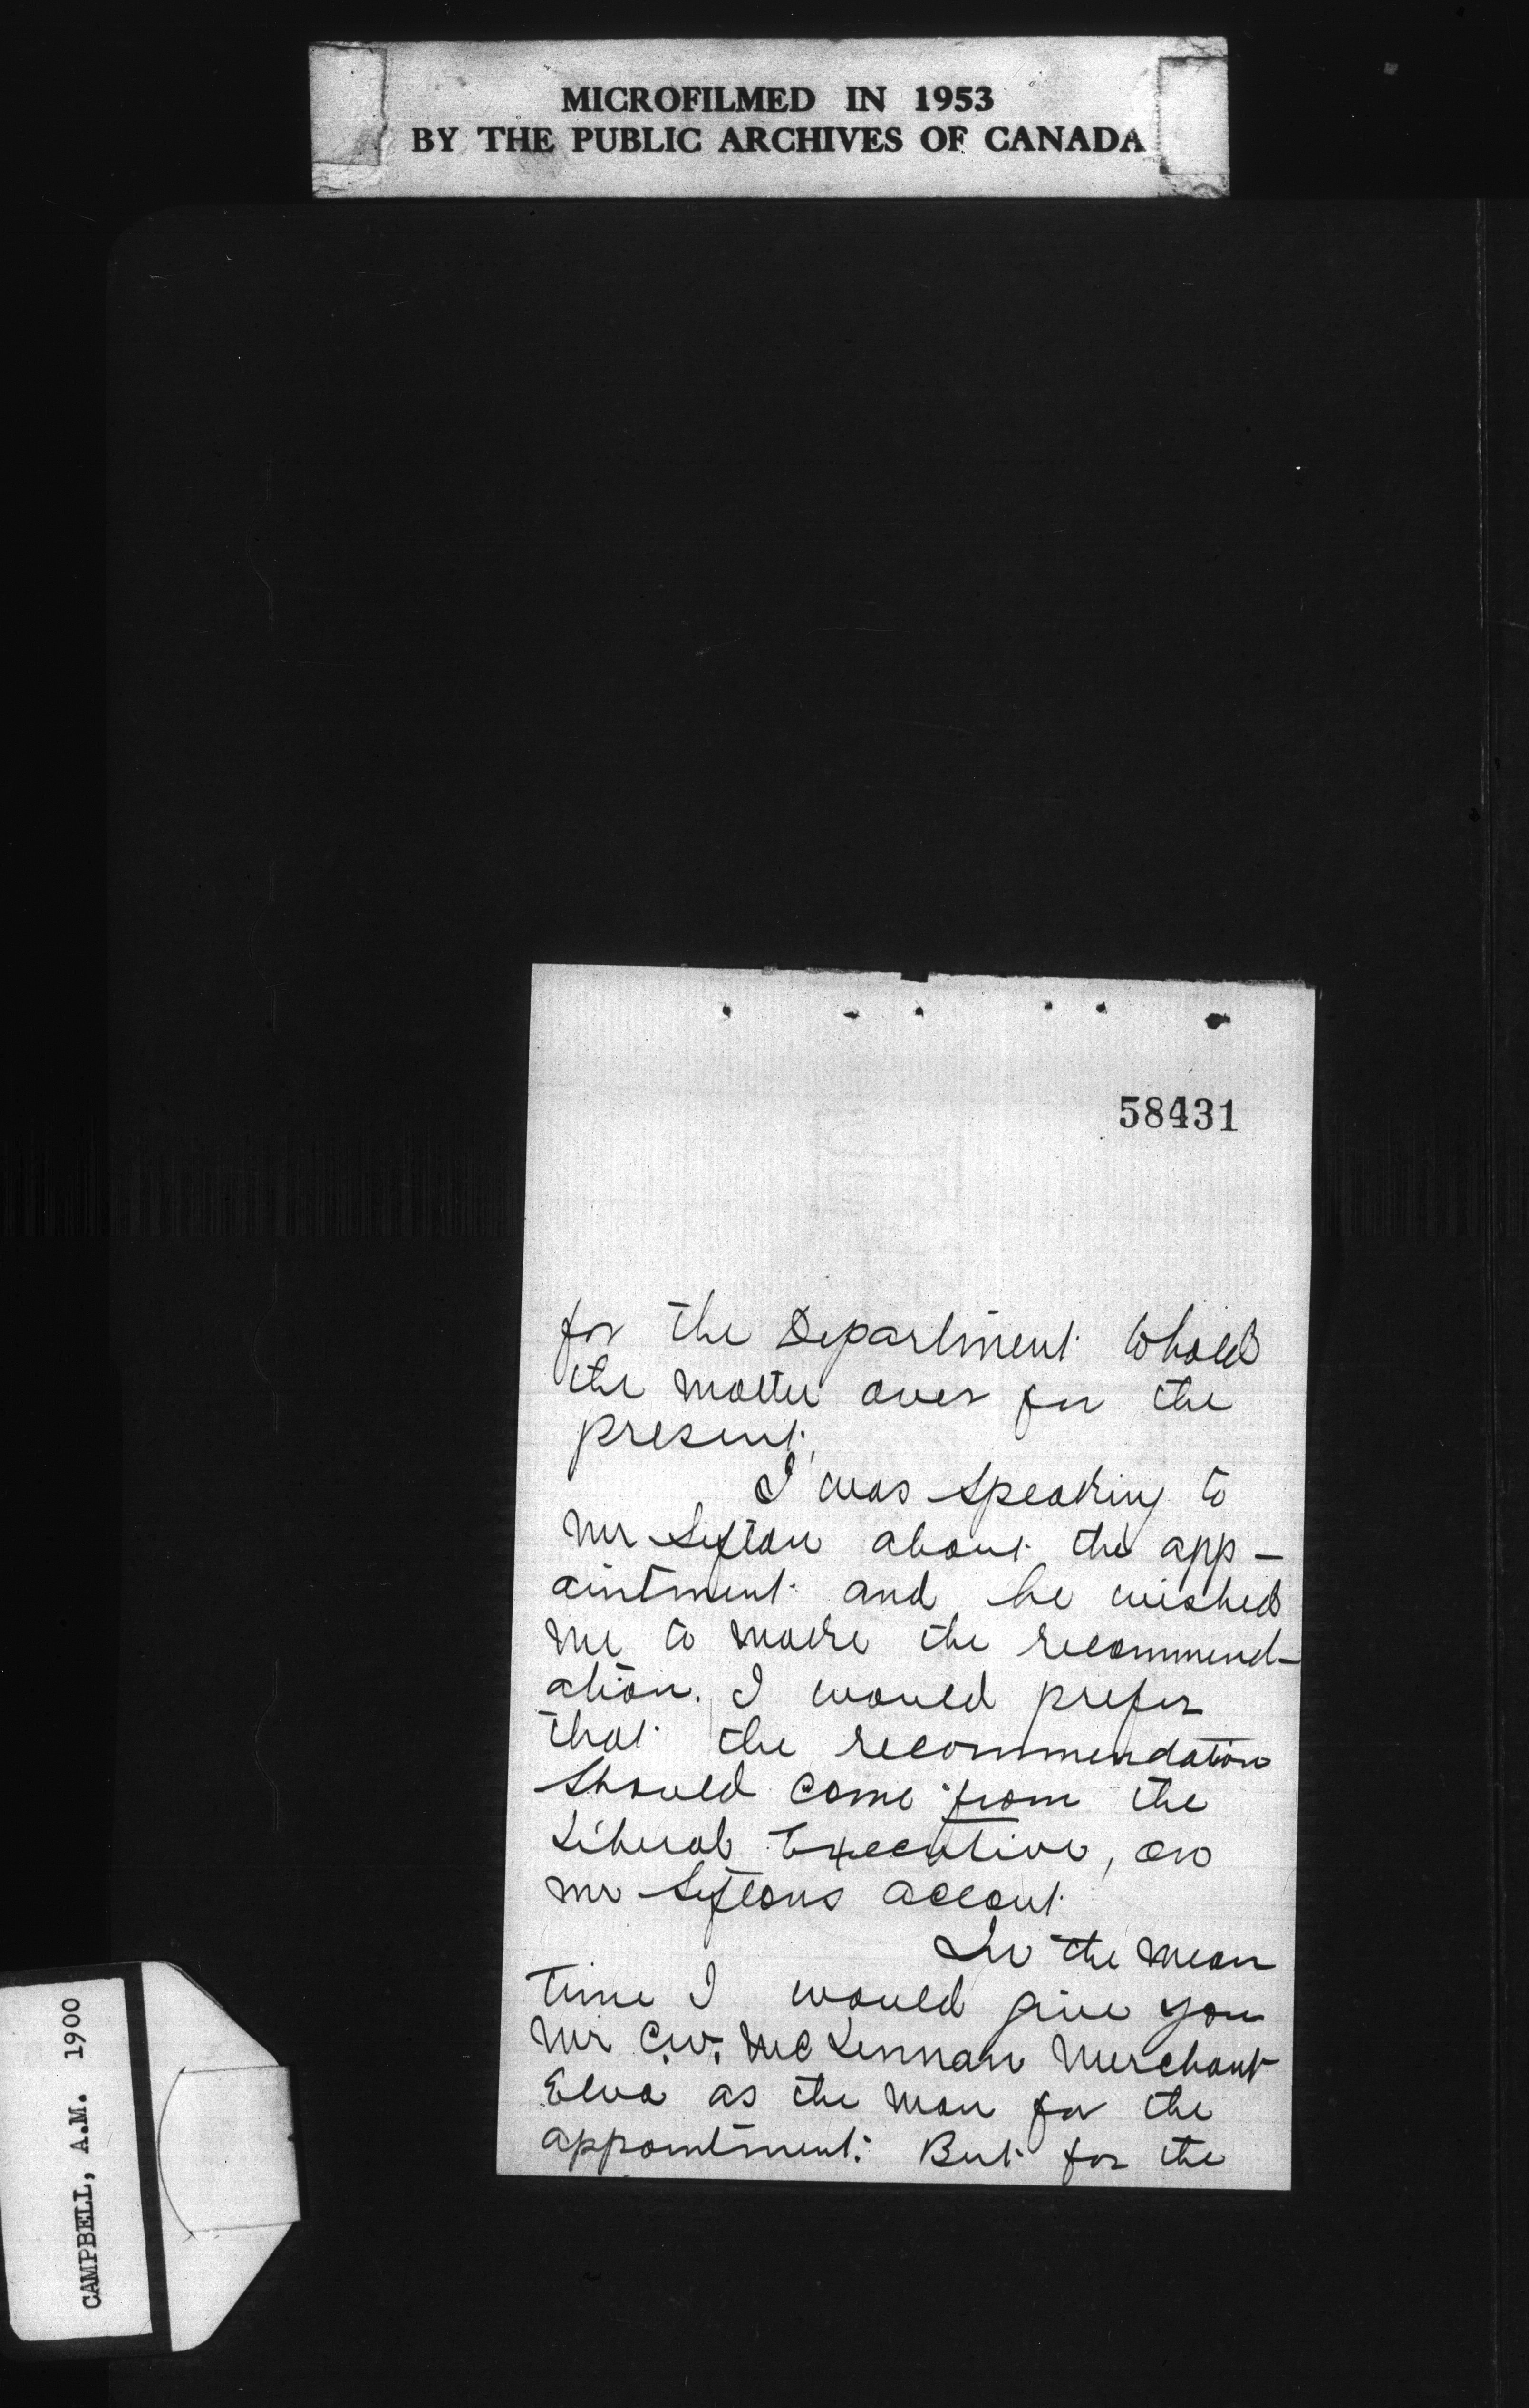 MICROFILMED IN 1953
BY THE PUBLIC ARCHIVES OF CANADA
58431
for the Department to hold
the matter over for the
present.
I was speaking to
Mr Sifton about the app-
ointment and he wished
me to make the recommend-
ation. I would prefer
that the recommendation
should come from the
Liberal Executive, on
Mr Siftons accout
In the mean
time I would give you
Mr C.W. McLennan Merchant
Elva as the man for the
appointment. But for the
CAMPBELL, A.M. 1900